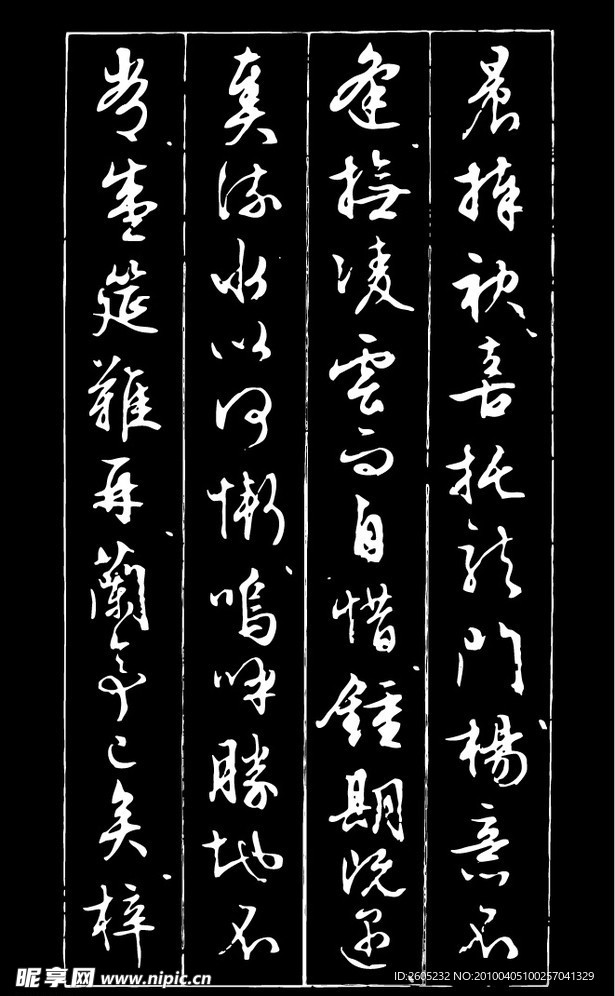 晨捧袂、喜托龍門、楊意不
逢、撫凌雲而自惜、鍾期既遇
奏流水以何慚、嗚呼勝地不
常、盛筵難再、蘭亭已矣、梓
昵享网 www.nipic.cn
ID:2605232 NO:20100405100257041329